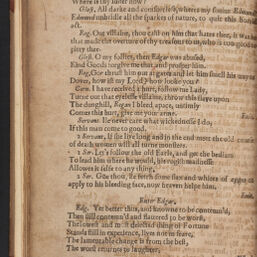 Where is thy luster now?
Glost. All darke and comfortlesse, wheres my sonne Edmund?
Edmund unbridle all the sparkes of nature, to quite this horred
act.
Reg. Out villaine, thou calst on him that hates thee, it was he
that made the overture of thy treasons to us, who is too good to
pitty thee.
Glost. O my follies, then Edgar was abused,
Kind Goods forgive me that, and prosper him.
Reg. Goe thrust him out at gates and let him smell his way to
Dover, how ist my Lord? how looke you?
Corn. I have receiv'd a hurt, follow me Lady,
Turne out that eyelesse villaine, throw this slave upon
The dunghill, Regan I bleed apace, untimely
Comes this hurt, give me your arme.
Servant. Ile never care what wickednesse I do,
If this man come to good.
2 Servant. If she live long and in the end meet the old course
of death women will all turne monsters.
1 Ser. Let's follow the old Earle, and get the bedlam
To lead him where he would, his rogish madnesse
Allowes it selfe to any thing.
2 Ser. Goe thou, ile fetch some flax and whites of egges to
apply to his bleeding face, now heaven helpe him. Exit.
Enter Edgar.
Edg. Yet better thus, and knowne to be contemn'd,
Then still contemn'd and flattered to be worst,
The lowest and most deiected thing of Fortune
Stands still in experience, lives not in feare,
The lamentable change is from the best,
The worst returnes to laughter.